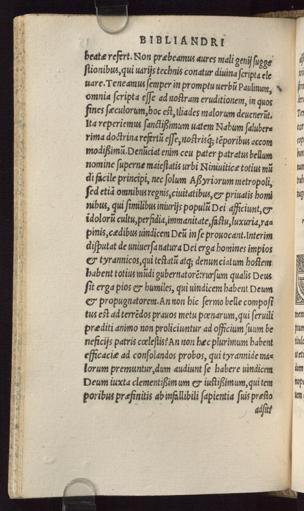 BIBLIANDRI
beata refert. Non præbeamus aures mali genij sugge
stionibus, qui uarijs technis conatur diuina scripta ele
uare. Teneamus semper in promptu uerbū Paulinum,
omnia scripta esse ad nostram eruditionem, in quos
fines sæculorum, hoc est, iliades malorum deuenerūt.
Ita reperiemus sanctißimum uatem Nahum saluber
rima doctrina refertū esse, nostrisq; tēporibus accom
modißimū. Denūciat enim ceu pater patratus bellum
nomine supernæ maiestatis urbi Niniuiticæ totius mū
di facile principi, nec solum Aßyriorum metropoli,
sed etiā omnibus regnis, ciuitatibus, & priuatis homi
nibus, qui similibus iniurijs populū Dei afficiunt, &
idolorū cultu, perfidia, immanitate, fastu, luxuria, ra-
pinis, cædibus uindicem Deū in se prouocant. Interim
disputat de uniuersa natura Dei erga homines impios
& tyrannicos, qui testatū atq; denunciatum hostem
habent totius mūdi gubernatorē: rursum qualis Deus
sit erga pios & humiles, qui uindicem habent Deum
& propugnatorem. An non hic sermo belle composi
tus est ad terrēdos prauos metu pœnarum, qui seruili
præditi animo non proliciuntur ad officium suum be
neficijs patris cœlestis? An non hæc plurimum habent
efficaciæ ad consolandos probos, qui tyrannide ma-
lorum premuntur, dum audiunt se habere uindicem
Deum iuxta clementißimum & iustißimum, qui tem
poribus præfinitis ab infallibili sapientia suis præsto
adsit